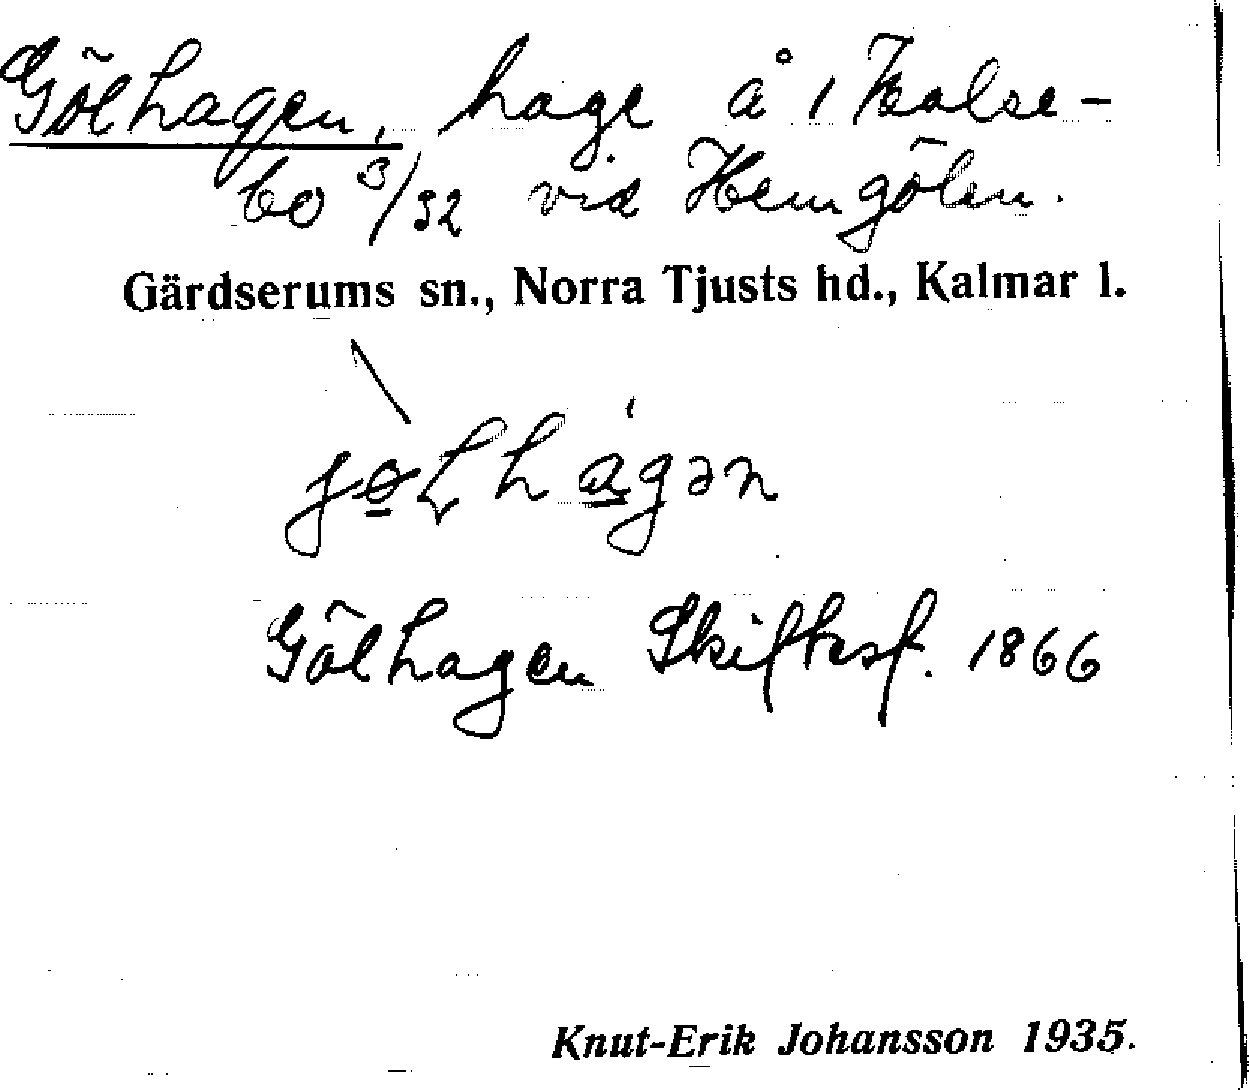 Gölhagen, hage å 1 Kalse-
bo 3/32 vid Hemgölen.
Gärdserums sn., Norra Tjusts hd., Kalmar l.
Gölhagen Skiftesf. 1866
Knut-Erik Johansson 1935.